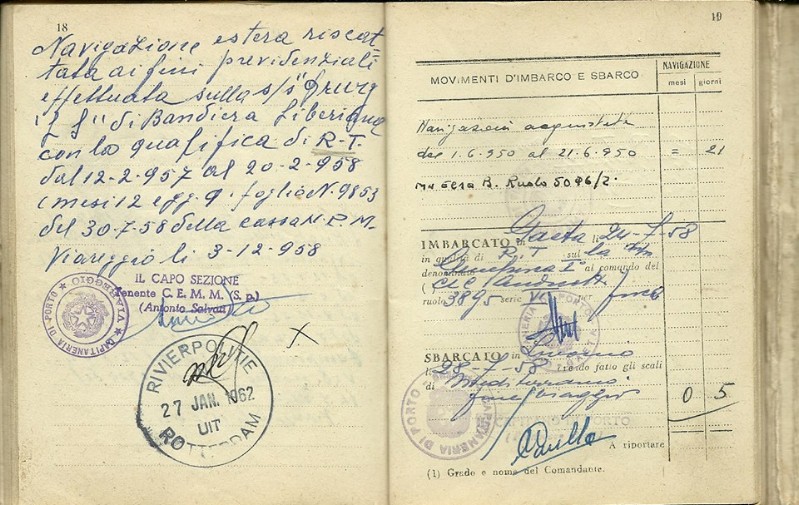 18
Navigazione estera riscat-
tata ai fini previdenziali
effettuata sulla s/s "
" di Bandiera Liberiana
con la qualifica di R.T.
dal 12-2-957 al 20-2-958
(mesi 12 e gg. 9. foglio N. 9853
del 30-7-58 della cassa N.P.M.
Viareggio li 3-12-958
IL CAPO SEZIONE
Tenente C.E.M.M. (S.p.)
(Antonio Salvati)
CAPITANERIA DI PORTO VIAREGGIO
X
RIVIERPOLITIE
27 JAN. 1962
UIT
ROTTERDAM
19
MOVIMENTI D'IMBARCO E SBARCO
NAVIGAZIONE
mesi giorni
Navigazioni acquistate
dal 1.6.950 al 21.6.950 = 21
B. Ruolo 5096/2.
IMBARCATO in Gaeta li 24-7-58
in qualità di R.T. sul
denominato al comando del
(
ruolo 3895 serie
SBARCATO in
li 28-7-58 ha fatto gli scali
di Mediterraneo
fine viaggio
0 5
CAPITANERIA DI PORTO
A riportare
(1) Grado e nome del Comandante.